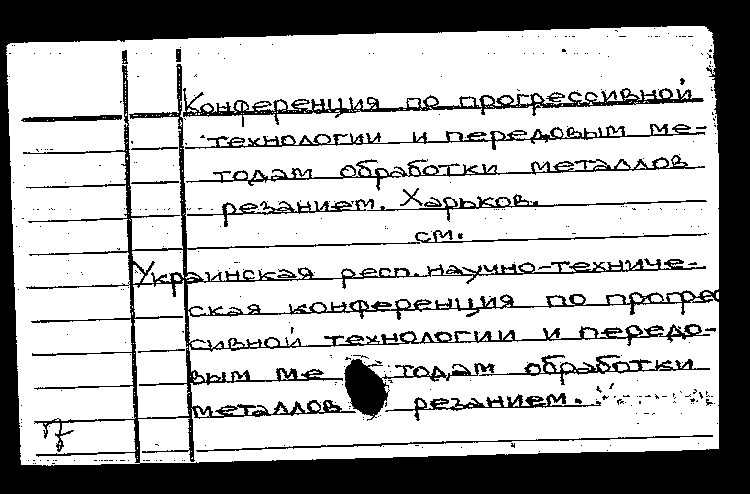 Конференция по прогрессивной
технологии и передовым ме=
тодам обработки металлов
резанием. Харьков.
см.
Украинская респ. научно-техниче-
ская конференция по прогрес
сивной технологии и передо-
вым ме тодам обработки
металлов резанием.